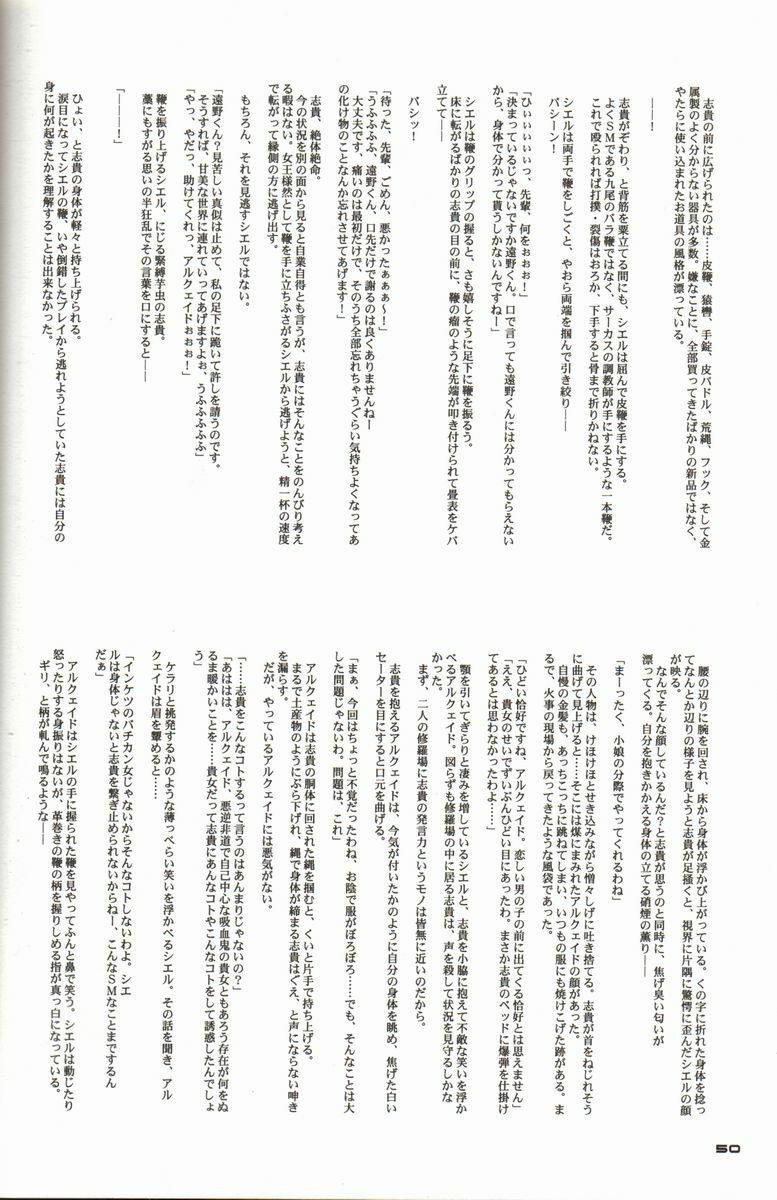 志貴の前に広げられたのは……皮鞭、猿轡、手錠、皮パドル、荒縄、フック、そして金
属製のよく分からない器具が多数。嫌なことに、全部買ってきたばかりの新品ではなく、
やたらに使い込まれたお道具の風格が漂っている。
「――！」
　志貴がぞわり、と背筋を粟立てる間にも、シエルは屈んで皮鞭を手にする。
　よくＳＭである九尾のバラ鞭ではなく、サーカスの調教師が手にするような一本鞭だ。
　これで殴られれば打撲・裂傷はおろか、下手すると骨まで折りかねない。
　シエルは両手で鞭をしごくと、やおら両端を掴んで引き絞り――
　バシーン！
「ひぃぃぃぃぃっ、先輩、何をぉぉぉ！」
「決まっているじゃないですか遠野くん。口で言っても遠野くんには分かってもらえない
から、身体で分かって貰うしかないんですねー」
　シエルは鞭のグリップの握ると、さも嬉しそうに足下に鞭を振るう。
　床に転がるばかりの志貴の目の前に、鞭の瘤のような先端が叩き付けられて畳表をケバ
立てて――
　バシッ！
「待った、先輩、ごめん、悪かったぁぁぁ～！」
「うふふふふ、遠野くん、口先だけで謝るのは良くありませんねー
　大丈夫です、痛いのは最初だけで、そのうち全部忘れちゃうぐらい気持ちよくなってあ
の化け物のことなんか忘れさせてあげます！」
　志貴、絶体絶命。
　今の状況を別の面から見ると自業自得とも言うが、志貴にはそんなことをのんびり考え
る暇はない。女王様然として鞭を手に立ちふさがるシエルから逃げようと、精一杯の速度
で転がって縁側の方に逃げ出す。
　もちろん、それを見逃すシエルではない。
「遠野くん？見苦しい真似は止めて、私の足下に跪いて許しを請うのです。
　そうすれば、甘美な世界に連れていってあげますよぉ、うふふふふふ」
「やっ、やだっ、助けてくれっ、アルクェイドぉぉぉ！」
　鞭を振り上げるシエル、にじる緊縛芋虫の志貴。
　藁にもすがる思いの半狂乱でその言葉を口にすると――
「―――！」
　ひょい、と志貴の身体が軽々と持ち上げられる。
　涙目になってシエルの鞭、いや倒錯したプレイから逃れようとしていた志貴には自分の
身に何が起きたかを理解することは出来なかった。
　腰の辺りに腕を回され、床から身体が浮かび上がっている。くの字に折れた身体を捻っ
てなんとか辺りの様子を見ようと志貴が足掻くと、視界に片隅に驚愕に歪んだシエルの顔
が映る。
　なんでそんな顔しているんだ？と志貴が思うのと同時に、焦げ臭い匂いが
漂ってくる。自分を抱きかかえる身体の立てる硝煙の薫り――
「まーったく、小娘の分際でやってくれるわね」
　その人物は、けほけほとせき込みながら憎々しげに吐き捨てる。志貴が首をねじれそう
に曲げて見上げると……そこには煤にまみれたアルクェイドの顔があった。
　自慢の金髪も、あっちこっちに跳ねてしまい、いつもの服にも焼けこげた跡がある。ま
るで、火事の現場から戻ってきたような風袋であった。
「ひどい恰好ですね、アルクェイド。恋しい男の子の前に出てくる恰好とは思えません」
「ええ、貴女のせいでずいぶんひどい目にあったわ。まさか志貴のベッドに爆弾を仕掛け
てあるとは思わなかったわよ……」
　顎を引いてぎらりと凄みを増しているシエルと、志貴を小脇に抱えて不敵な笑いを浮か
べるアルクェイド。図らずも修羅場の中に居る志貴は、声を殺して状況を見守るしかな
かった。
　まず、二人の修羅場に志貴の発言力というモノは皆無に近いのだから。
　志貴を抱えるアルクェイドは、今気が付いたかのように自分の身体を眺め、焦げた白い
セーターを目にすると口元を曲げる。
「まぁ、今回はちょっと不覚だったわね、お陰で服がぼろぼろ……でも、そんなことは大
した問題じゃないわ。問題は、これ」
　アルクェイドは志貴の胴体に回された縄を掴むと、くいと片手で持ち上げる。
　まるで土産物のようにぶら下げれ、縄で身体が締まる志貴はぐえ、と声にならない呻き
を漏らす。
　だが、やっているアルクェイドには悪気がない。
「……志貴をこんなコトするって言うのはあんまりじゃないの？」
「あははは、アルクェイド、悪逆非道で自己中心な吸血鬼の貴女ともあろう存在が何をぬ
るま暖かいことを……貴女だって志貴にあんなコトやこんなコトをして誘惑したんでしょ
う」
　ケラリと挑発するかのような薄っぺらい笑いを浮かべるシエル。その話を聞き、アル
クェイドは眉を顰めると……
「インケツのバチカン女じゃないからそんなコトしないわよ。シエ
ルは身体じゃないと志貴を繋ぎ止められないからねー、こんなＳＭなことまでするん
だぁ」
　アルクェイドはシエルの手に握られた鞭を見やってふんと鼻で笑う。シエルは動じたり
怒ったりする身振りはないが、革巻きの鞭の柄を握りしめる指が真っ白になっている。
　ギリ、と柄が軋んで鳴るような――
50